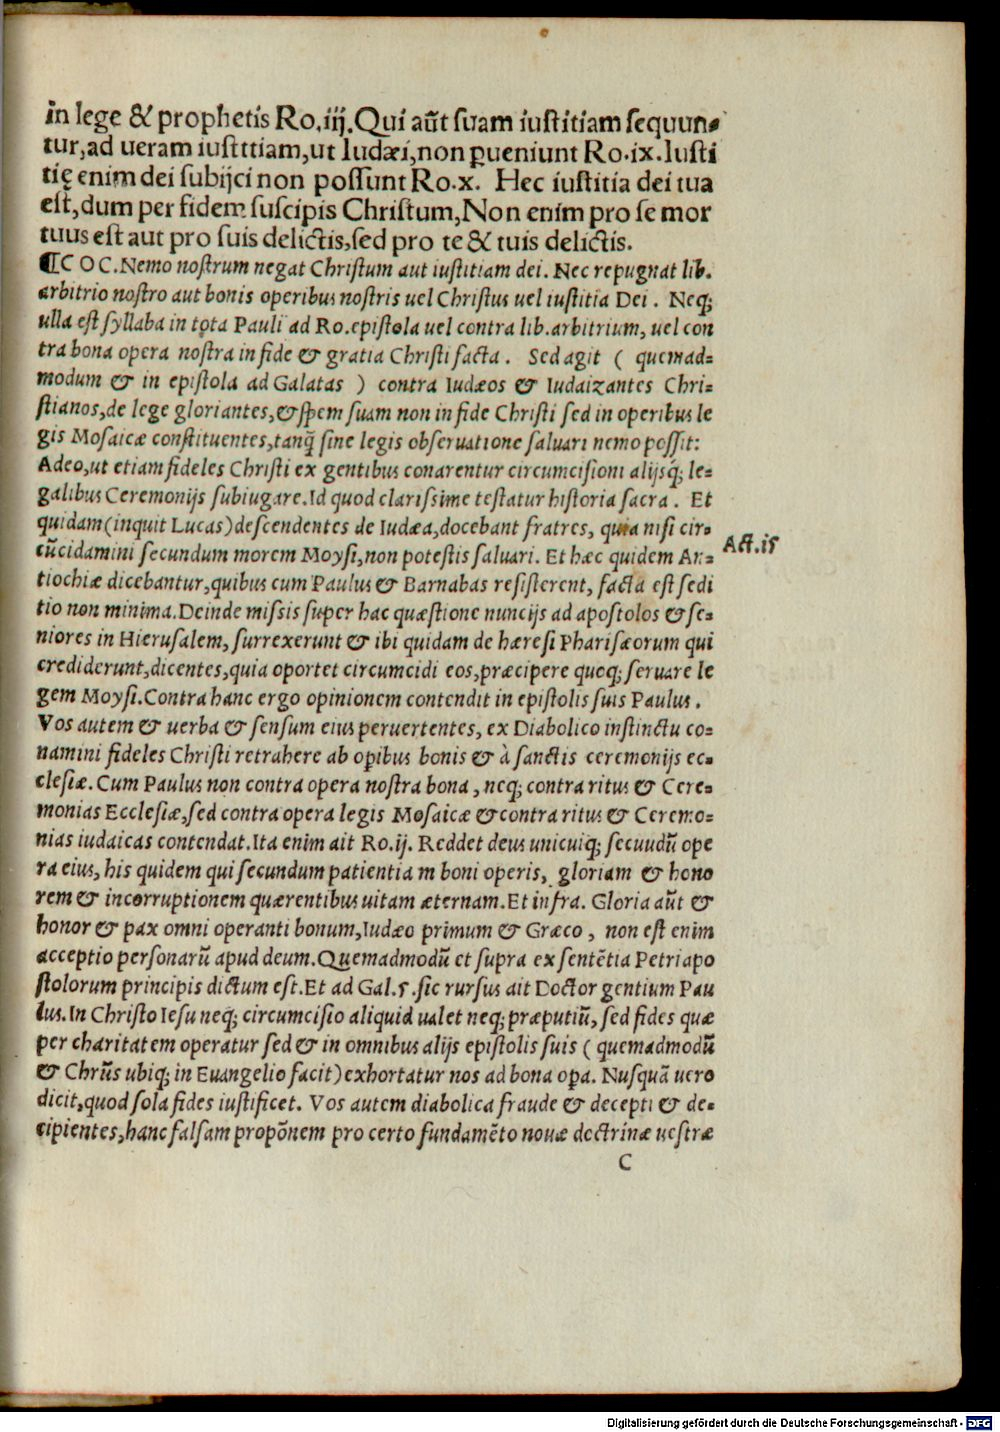 in lege & prophetis Ro.iij. Qui aūt suam iustitiam sequun-
tur, ad ueram iustitiam, ut Iudæi, non ꝑueniunt Ro.ix. Iusti
tię enim dei subijci non possunt Ro.x. Hec iustitia dei tua
est, dum per fidem suscipis Christum, Non enim pro se mor
tuus est aut pro suis delictis, sed pro te & tuis delictis.
¶COC. Nemo nostrum negat Christum aut iustitiam dei. Nec repugnat lib.
arbitrio nostro aut bonis operibus nostris uel Christus uel iustitia Dei. Neq;
ulla est syllaba in tota Pauli ad Ro. epistola uel contra lib. arbitrium, uel con
tra bona opera nostra in fide & gratia Christi facta. Sed agit ( quemad-
modum & in epistola ad Galatas ) contra Iudæos & Iudaizantes Chri-
stianos, de lege gloriantes, & spem suam non in fide Christi sed in operibus le
gis Mosaicæ constituentes, tanq̃ sine legis obseruatione saluari nemo possit:
Adeo, ut etiam fideles Christi ex gentibus conarentur circumcisioni alijsq; le-
galibus Ceremonijs subiugare. Id quod clarissime testatur historia sacra. Et
quidam (inquit Lucas) descendentes de Iudæa, docebant fratres, quia nisi cir-
cūcidamini secundum morem Moysi, non potestis saluari. Et hæc quidem An-
Act.15
tiochiæ dicebantur, quibus cum Paulus & Barnabas resisterent, facta est sedi
tio non minima. Deinde missis super hac quæstione nuncijs ad apostolos & se-
niores in Hierusalem, surrexerunt & ibi quidam de hæresi Pharisæorum qui
crediderunt, dicentes, quia oportet circumcidi eos, præcipere queq; seruare le
gem Moysi. Contra hanc ergo opinionem contendit in epistolis suis Paulus.
Vos autem & uerba & sensum eius peruertentes, ex Diabolico instinctu co-
namini fideles Christi retrahere ab oꝑibus bonis & à sanctis ceremonijs ec-
clesiæ. Cum Paulus non contra opera nostra bona, neq; contra ritus & Cere-
monias Ecclesiæ, sed contra opera legis Mosaicæ & contra ritus & Ceremo-
nias iudaicas contendat. Ita enim ait Ro.ij. Reddet deus unicuiq; secuudū ope
ra eius, his quidem qui secundum patientia m boni operis, gloriam & hono
rem & incorruptionem quærentibus uitam æternam. Et infra. Gloria aūt &
honor & pax omni operanti bonum, Iudæo primum & Græco, non est enim
acceptio personarū apud deum. Quemadmodū et supra ex sentētia Petri apo
stolorum principis dictum est. Et ad Gal.5. sic rursus ait Doctor gentium Pau
lus. In Christo Iesu neq; circumcisio aliquid ualet neq; præputiū, sed fides quæ
per charitatem operatur sed & in omnibus alijs epistolis suis ( quemadmodū
& Chrūs ubiq; in Euangelio facit) exhortatur nos ad bona oꝑa. Nusquā uero
dicit, quod sola fides iustificet. Vos autem diabolica fraude & decepti & de-
cipientes, hanc falsam propōnem pro certo fundamēto nouæ doctrinæ uestræ
C
Digitalisierung gefördert durch die Deutsche Forschungsgemeinschaft - DFG